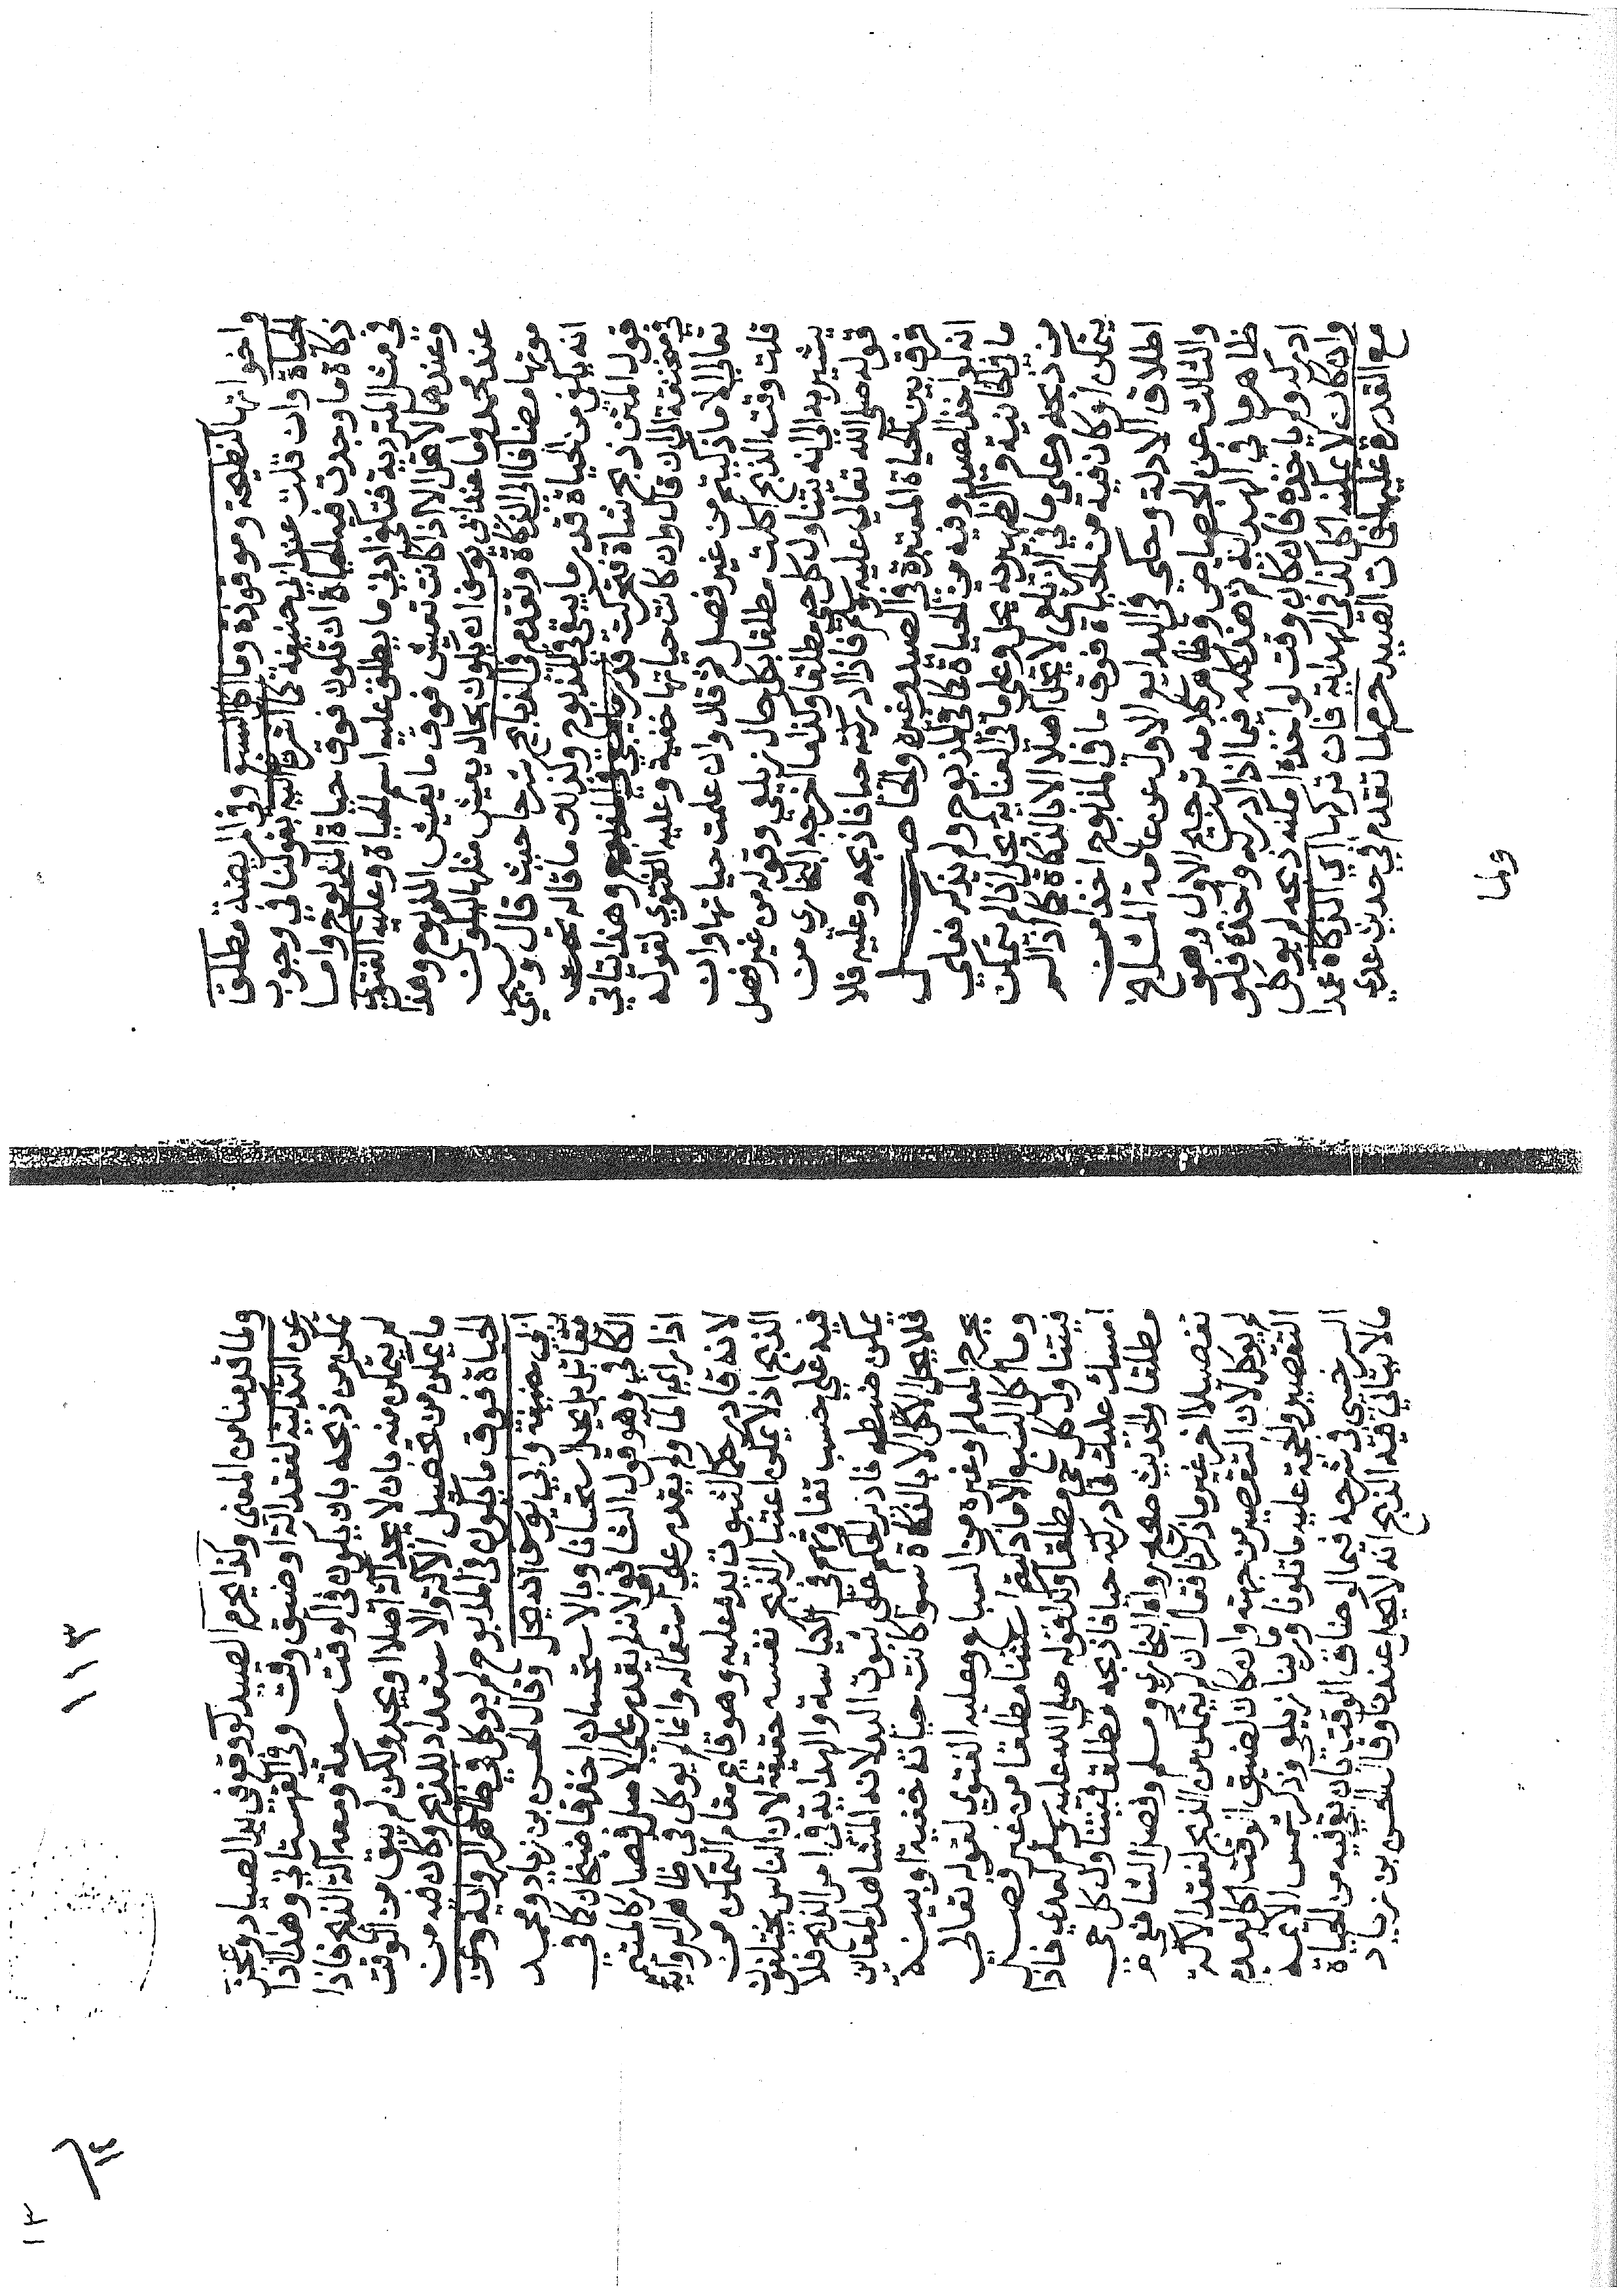 واخواتها كنطيحة وموقوذة وما اكل السبع وفي المريضة مطلق
الحياة وان قلت عند ابي حنيفة كما اشرنا اليه بقولنا في وجوب
ذكاة ما وجدت فيه الحياة ان تكون فوق حياة المذبوح واما
في مثل المتردية فتكفي ادني ما يطلق عليه اسم الحياة وعليه الفتوي
وعندهما لا تحل الا اذا كانت تعيش فوق ما يعيش المذبوح وهذا
عند محمد واما عند ابي يوسف ان يكون بحال يعيش مثلها ليكون
موتها مضافا الي الذكاة وتقدم في الذبايح شرحا حيث قال
انه يكفي من الحياة قدر ما يبقي في المذبوح وكذلك ما قاله تحت
قول المتن ذبح شاة فتحركت وهذا يتاتي
في منخنقة الي ان قال وان كانت حياتها خفية وعليه الفتوي لقوله
تعالي الا ما ذكيتم من غير فصل ثم قال وان علمت حياتها وان
قلت وقت الذبح اكلت مطلقا بكل حال زيلعي وقوله من غير فصل
يشير به الي انه يتناول كل حي مطلقا وكذا ما اخرجه البخاري من
قوله صلي الله تعالي عليه وسلم فاذا ادركته حيا فاذبحه وعليه فلا
فرق بين الحياة المعتبرة في الصيد وغيره والحاصل
انه لو اخذ الصيد وفيه من الحياة كما في المذبوح ولم يذكه فعلي
ما في الخانية والظهيرية يحل وعلي ما في العناية يحل اذا لم يتمكن
من ذبحه وعلي ما في الزيلعي لا يحل اصلا الا بالذكاة كما اذا لم
يتمكن او كان فيه من الحياة فوق ما في المذبوح اخذا من
اطلاق الادلة وحكي في البدايع الاول عن عامة المشايخ
والثالث عن الجصاص وظاهر كلامه ترجيح الاول وهو
ظاهر ما في الهداية ثم هذا كله فيما اذا ادركه واخذه فلو
ادركه ولم ياخذه فان كان وقت لو اخذه امكنه ذبحه لم يوكل
وان كان لا يمكنه اكل كذا في الهداية فان تركها اي الذكاة عمدا
مع القدرة عليها فمات الصيد حرم لما تقدم في حديث عدي
ولما
١١٣
ولما قدمنا من المعني وكذا يحرم الصيد لو وقع في يد الصياد وعجز
عن التذكية لفقد الة او ضيق وقت وفي القهستاني وهذا اذا
تمكن من ذبحه بان يكون في الوقت سعة ومعه الة الذبح فاذا
لم يتمكن منه بان لا يجد الة اصلا او يجد ولكن لم يبق من الوقت
ما يمكن من تحصيل الالة والاستعداد للذبح وكان فيه من
الحياة فوق ما يكون في المذبوح لم يوكل في ظاهر الرواية وعن
ابي حنيفة وابي يوسف انه يحل وقال الحسن بن زياد ومحمد
بن مقاتل يحل استحسانا وبالاستحسان اخذ قاضيخان كما في
الكافي وهو قول الشافعي لانه لم يقدر علي الاصل فصار كالمتيمم
اذا راي الما ولم يقدر علي استعماله وانما لم يوكل في ظاهر الرواية
لانه قادر حكما لثبوت يده عليه وهو قايم مقام التمكن من
الذبح اذ لا يمكن اعتبار الذبح نفسه حقيقة لان الناس يختلفون
فيه علي حسب تفاوتهم في الكياسة والهداية في امر الذبح فلا
يمكن ضبطه فادير الحكم علي ثبوت اليد لانه المشاهد المعاين
فلا يحل الاكل الا بالذكاة سوا كانت حياته خفية او بينة
بجرح المعلم او غيره من السباع وعليه الفتوي لقوله تعالي
وما اكل السبع الا ما ذكيتم استثنا مطلقا من غير فصل
فيتناول كل حي مطلقا وكذا قوله صلي الله عليه وسلم لعدي فاذا
امسك عليك فادركته حيا فاذبحه مطلق فيتناول كل حي
مطلقا والحديث صحيح رواه البخاري ومسلم وفصل الشافعي
تفصيلا اخر غير ما ذكرنا فقال ان لم يتمكن من الذبح لفقد الالة
لم يوكل لان التقصير من جهته وان كان لضيق الوقت اكل لعدم
التقصير والحجة عليه ما تلونا وروينا زيلعي وذكر شمس الايمة
السرخسي في شرحه فيما لو ضاق الوقت بان بقي فيه من الحياة
مالا يتاتي فيه الذبح انه لا يحل عندنا وقال الحسن بن زياد
١٣